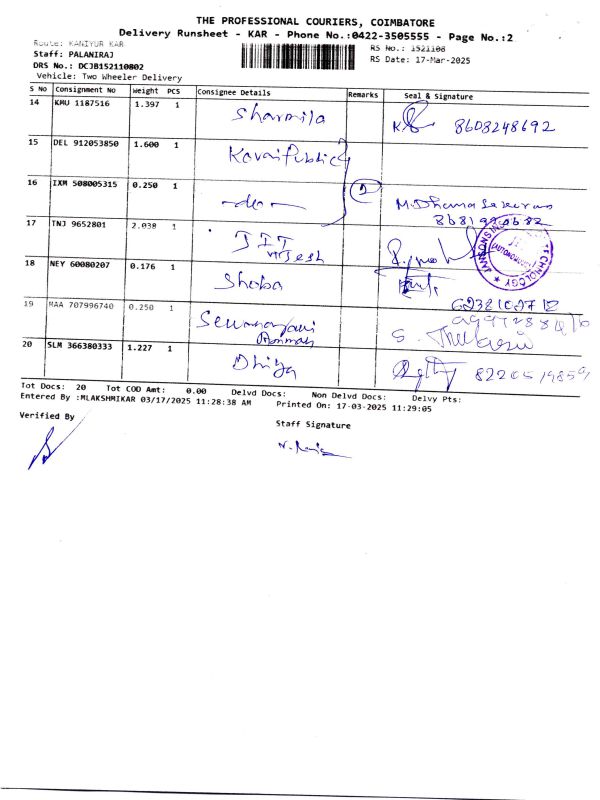 THE PROFESSIONAL COURIERS, COIMBATORE
Delivery Runsheet - KAR - Phone No.:0422-3505555 - Page No.:2
Route: KANIYUR KAR
RS No.: 1521108
Staff: PALANIRAJ
RS Date: 17-Mar-2025
DRS No.: DCJB152110802
Vehicle: Two Wheeler Delivery
S No Consignment No Weight PCS Consignee Details Remarks Seal & Signature
14 KMU 1187516 1.397 1 Sharmila 8603248692
15 DEL 912053850 1.600 1 Kovai Public
16 IXM 508005315 0.250 1 -do- 2 M.Dhanasekaran
17 TNJ 9652801 2.038 1 JIT
18 NEY 60080207 0.176 1 Shoba
19 MAA 707996740 0.250 1
20 SLM 366380333 1.227 1 Dhiya 8220519859
Tot Docs: 20 Tot COD Amt: 0.00 Delvd Docs: Non Delvd Docs: Delvy Pts:
Entered By :MLAKSHMIKAR 03/17/2025 11:28:38 AM Printed On: 17-03-2025 11:29:05
Verified By
Staff Signature